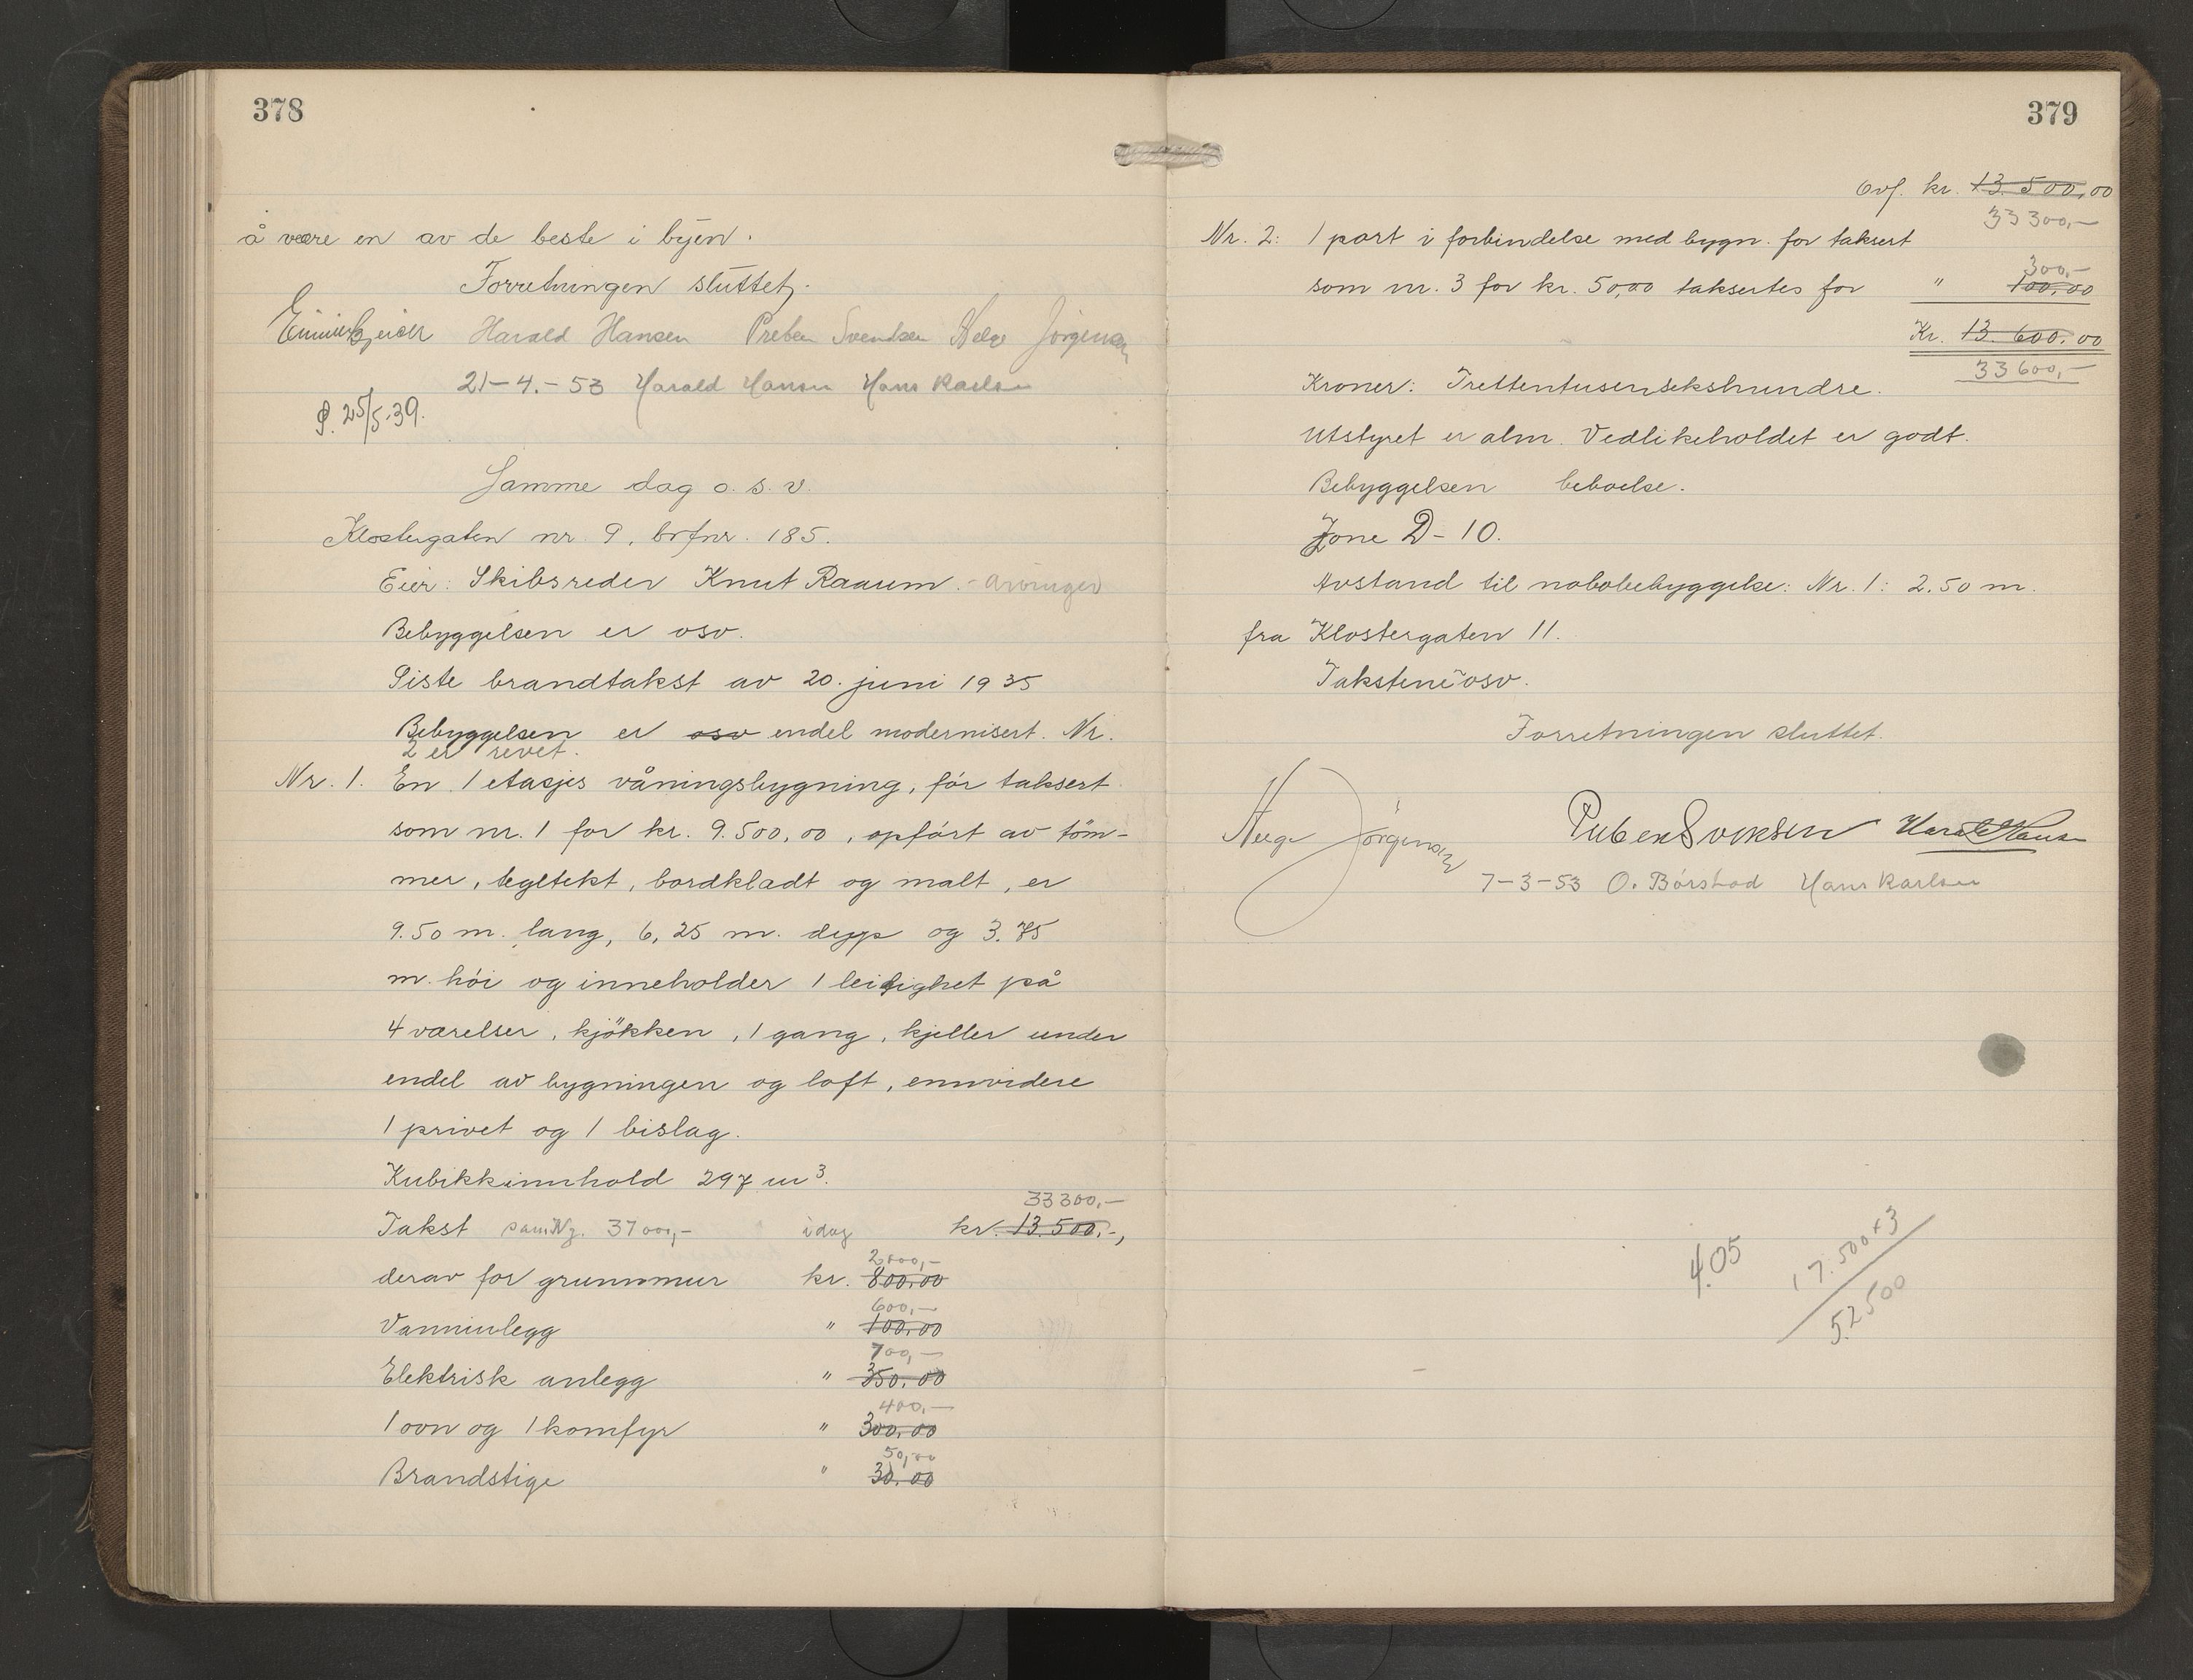 378
å være en av de beste i byen.
Forretningen sluttet.
Harald Hansen Preben Svendsen Helge Jörgensen
21-4.-53 Harald Hansen Hans Karlsen
P. 25/5.39.
Samme dag o. s. v.
Klostergaten nr. 9, brfnr. 185.
Eier: Skibsreder Knut Raaum. - arvinger
Bebyggelsen er osv.
Siste brandtakst av 20. juni 1935
Bebyggelsen er osv endel modernisert. Nr.
2 er revet.
Nr. 1. En 1 etasjes våningsbygning, før taksert
som nr. 1 for kr. 9.500,00, opført av töm-
mer, tegltekt, bordkladt og malt, er
9.50 m. lang, 6,25 m. dyp og 3.75
m. høi og inneholder 1 leilighet på
4 værelser, kjökken, 1 gang, kjeller under
endel av bygningen og loft, ennvidere
1 privet og 1 bislag.
Kubikkinnhold 297 m³.
33300,-
Takst 37000,- idag kr. 13.500.-,
2000,-
derav for grunnmur kr. 800,00
600,-
Vanninlegg " 100,00
700,-
Elektrisk anlegg " 350,00
400,-
1 ovn og 1 komfyr " 300,00
50,00
Brandstige " 30,00
379
Ovf. kr. 13.500,00
33300,-
Nr. 2: 1 port i forbindelse med bygn. for taksert
300,-
som nr. 3 for kr. 50,00 taksertes for " 100,00
Kr. 13.600,00
33600,-
Kroner: Trettentusensekshundre.
Utstyret er alm. Vedlikeholdet er godt.
Bebyggelsen beboelse.
Zone D-10.
Avstand til nabobebyggelse: Nr. 1: 2.50 m.
fra Klostergaten 11.
Takstene osv.
Forretningen sluttet.
Helge Jörgensen Preben Svendsen Harald Hansen
7-3-53 O. Börstad Hans Karlsen
4.05
17.500x3
52500